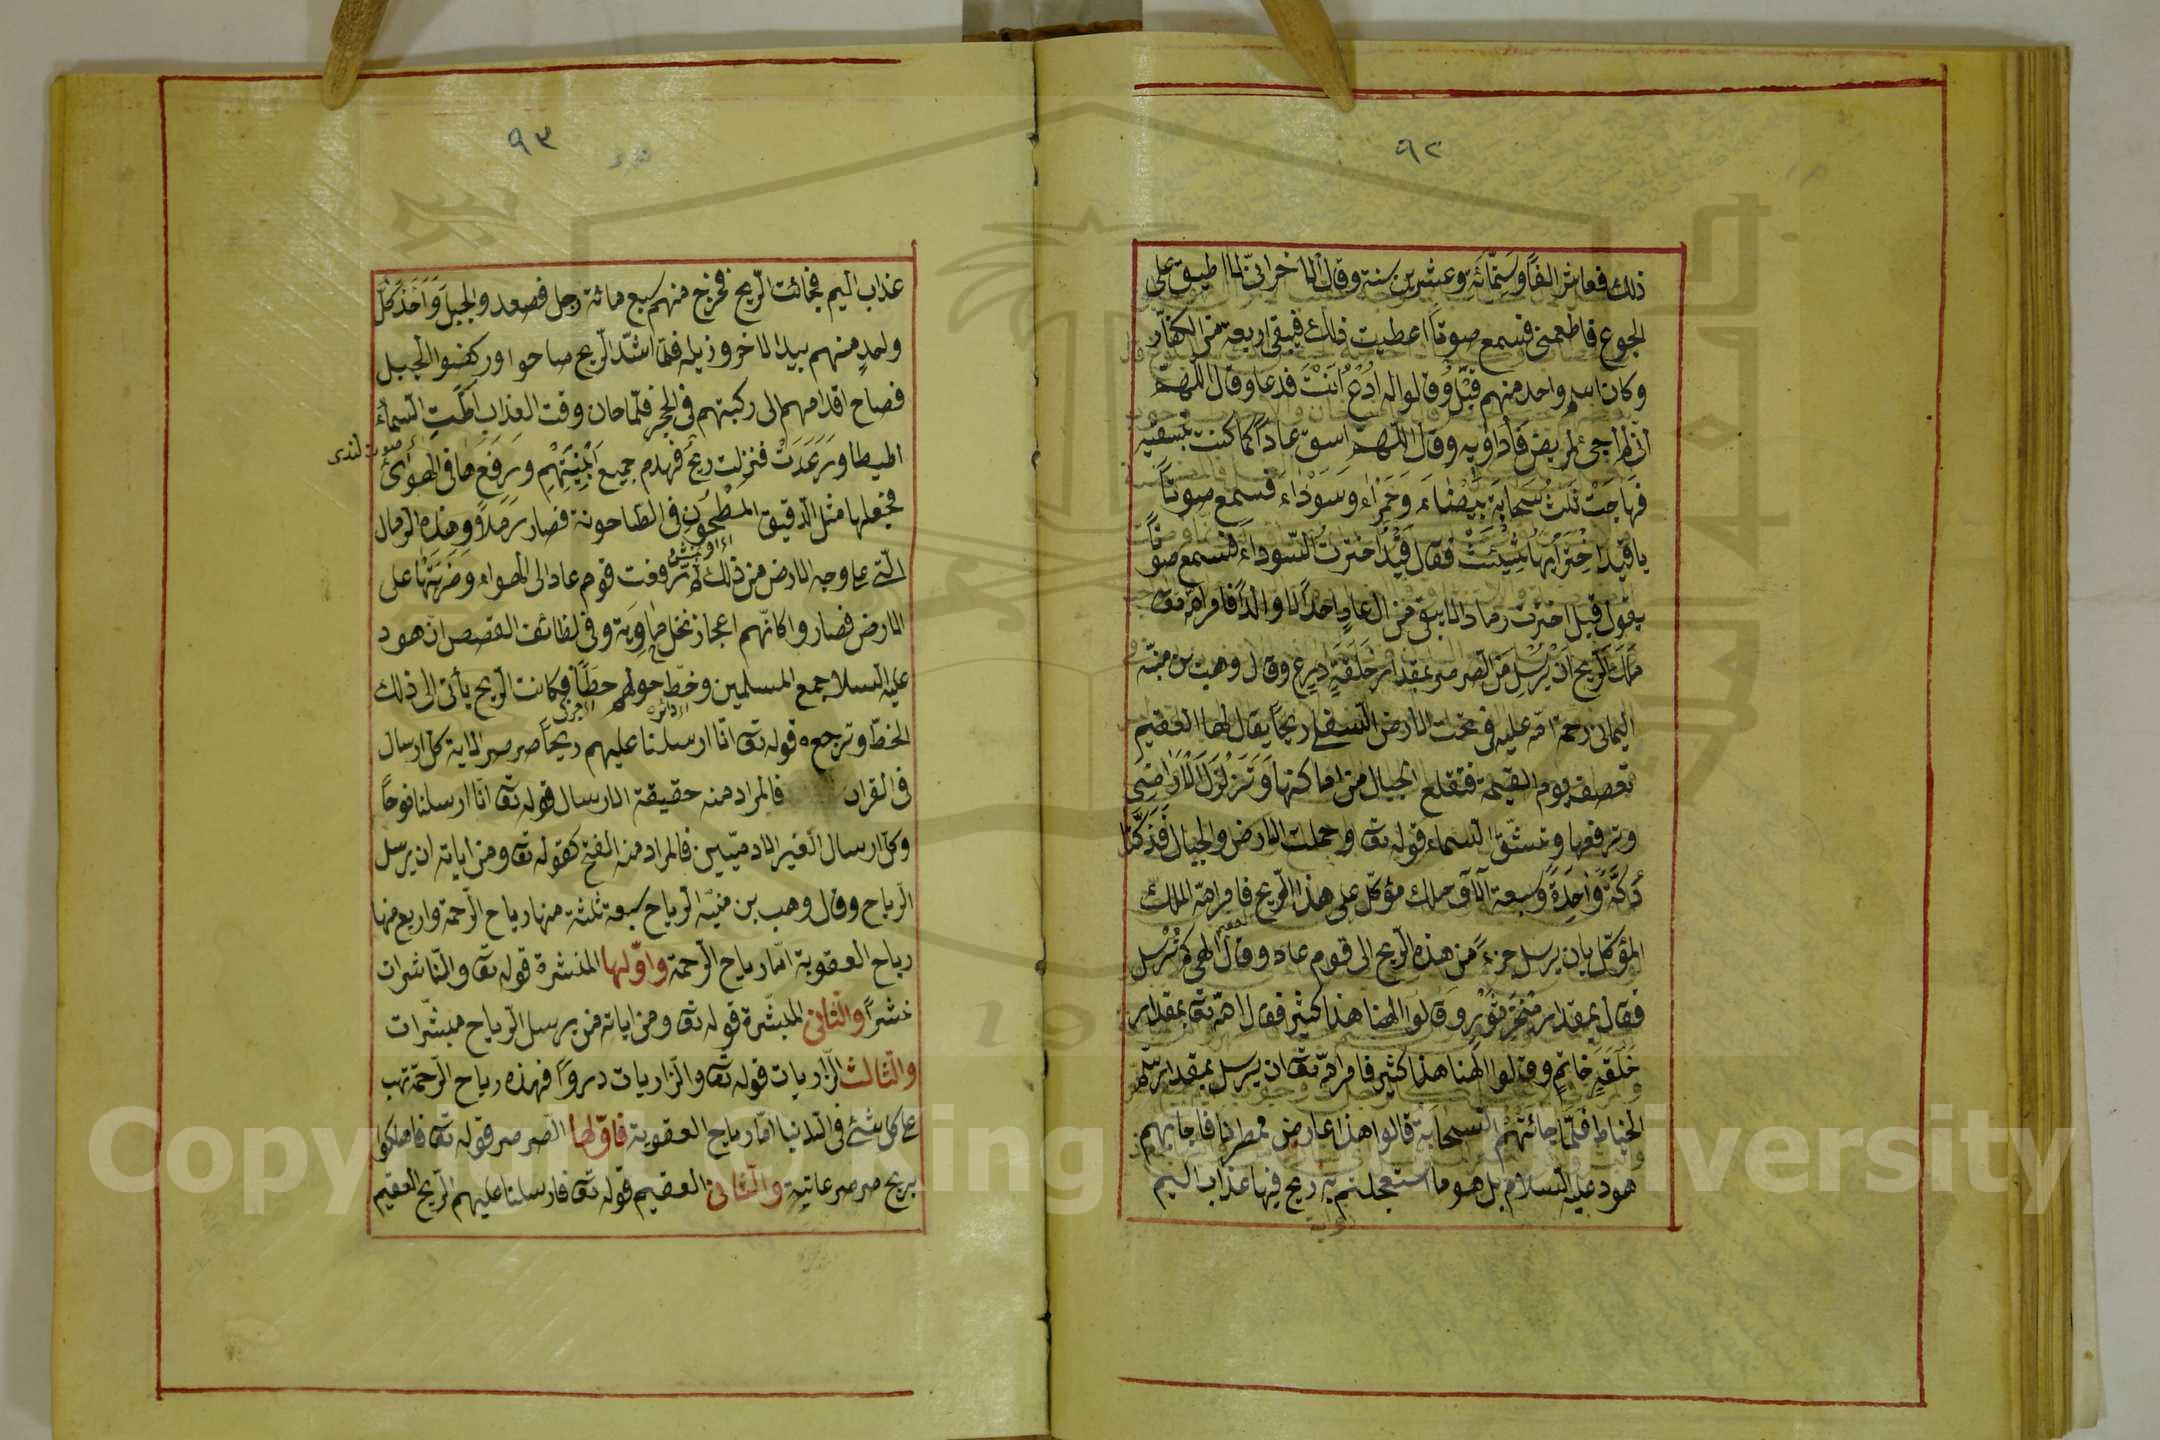 ٩٢
ذلك فعاش الفًا وستّمائة وعشرين سنة وقال الاخر انّى لا اطيق على
الجوع فاطعمنى فسمع صوتًا اعطيت ذلك فبقى اربعة من الكفّار
وكان اسم واحد منهم قيل وقالوا له ادع انت فدعا وقال اللّهمّ
انّى لم اجئ لمريض فاداويه وقال اللّهمّ اسق عادًا كما كنت تسقيه
فهاجت ثلث سحابة بيضاء وحمراء وسوداء فسمع صوتًا
يا قيل اختر ايها شئت فقال قيل اخترت السّوداء فسمع صوتًا
يقول قيل اخترت رمادا لا يبقى من ال عاد احدًا لا والدًا فامر الله تعا
ملك الريح ان يرسل من الصرصر بمقدار حلقة درع وقال وهب بن منبّه
اليمانى رحمة الله عليه فى تحت الارض السفلى ريحًا يقال لها العقيم
تعصف يوم القيمة فتقلع الجبال من اماكنها وتزلزل الاراضى
وترفعها وتنشقّ السماء قوله تعا وحملت الارض والجبال فدكّتا
دكّة واحدة وسبعة الاف ملك مؤكّل على هذا الريح فامر الله الملك
المؤكّل بان يرسل جزءً من هذه الريح الى قوم عاد وقال الهى كم نرسل
فقال بمقدار منخر ثور وقالوا الهنا هذا كثير فقال الله تعا بمقدار
حلقة خاتم وقالوا الهنا هذا كثير فامر الله تعا ان يرسل بمقدار سمّ
الخياط فلمّا جائتهم السحابة قالوا هذا عارض ممطرنا فاجابهم
هود عليه السلام بل هو ما استعجلتم به ريح فيها عذاب اليم
٩٣
عذاب اليم فجائت الرّيح فخرج منهم سبع مائة رجل فصعدو الجبل واخذ كلّ
واحد منهم بيد الاخر وذيله فلمّا اشتدّ الرّيح صاحوا وركضوا الجبل
فصاح اقدامهم الى ركبتهم فى الحجر فلمّا حان وقت العذاب اطّت السماء
اطيطا ورعدت فنزلت ريح فهدم جميع ابنيتهم ورفع ما فى الهوائ
فجعلها مثل الدّقيق المطحون فى الطاحونة فصار رملًا وهذه الرمال
الّتى على وجه الارض من ذلك ثمّ رفعت قوم عاد الى الهواء وضربتها على
الارض فصاروا كانّهم اعجاز نخل خاوية وفى لطائف القصص ان هود
عليه السلام جمع المسلمين وخطّ حولهم خطًّا فكانت الريح يأتى الى ذلك
الخطّ وترجع ه قوله تعا انّا ارسلنا عليهم ريحًا صرصر الاية كلّ ارسال
فى القران فالمراد منه حقيقة الارسال قوله تعا انّا ارسلنا نوحًا
وكلّ ارسال الغير الادميّين فالمراد منه الفتح كقوله تعا ومن اياته ان يرسل
الرّياح وقال وهب بن منبّه الرّياح سبعة ثلثة منها رياح الرّحمة واربع منها
رياح العقوبة امّا رياح الرّحمة واوّلها المنشرة قوله تعا والنّاشرات
نشرًا والثّانى المبشّرة قوله تعا ومن اياته من يرسل الرّياح مبشّرات
والثّالث الزّاريات قوله تعا والزّاريات دروًا فهذه رياح الرّحمة تهب
على كلّ شئ فى الدّنيا امّا رياح العقوبة فاوّلها الصّرصر قوله تعا فاهلكوا
بريح صرصر عاتية والثّانى العقيم قوله تعا فارسلنا عليهم الرّيح العقيم
Copyright © King Saud University